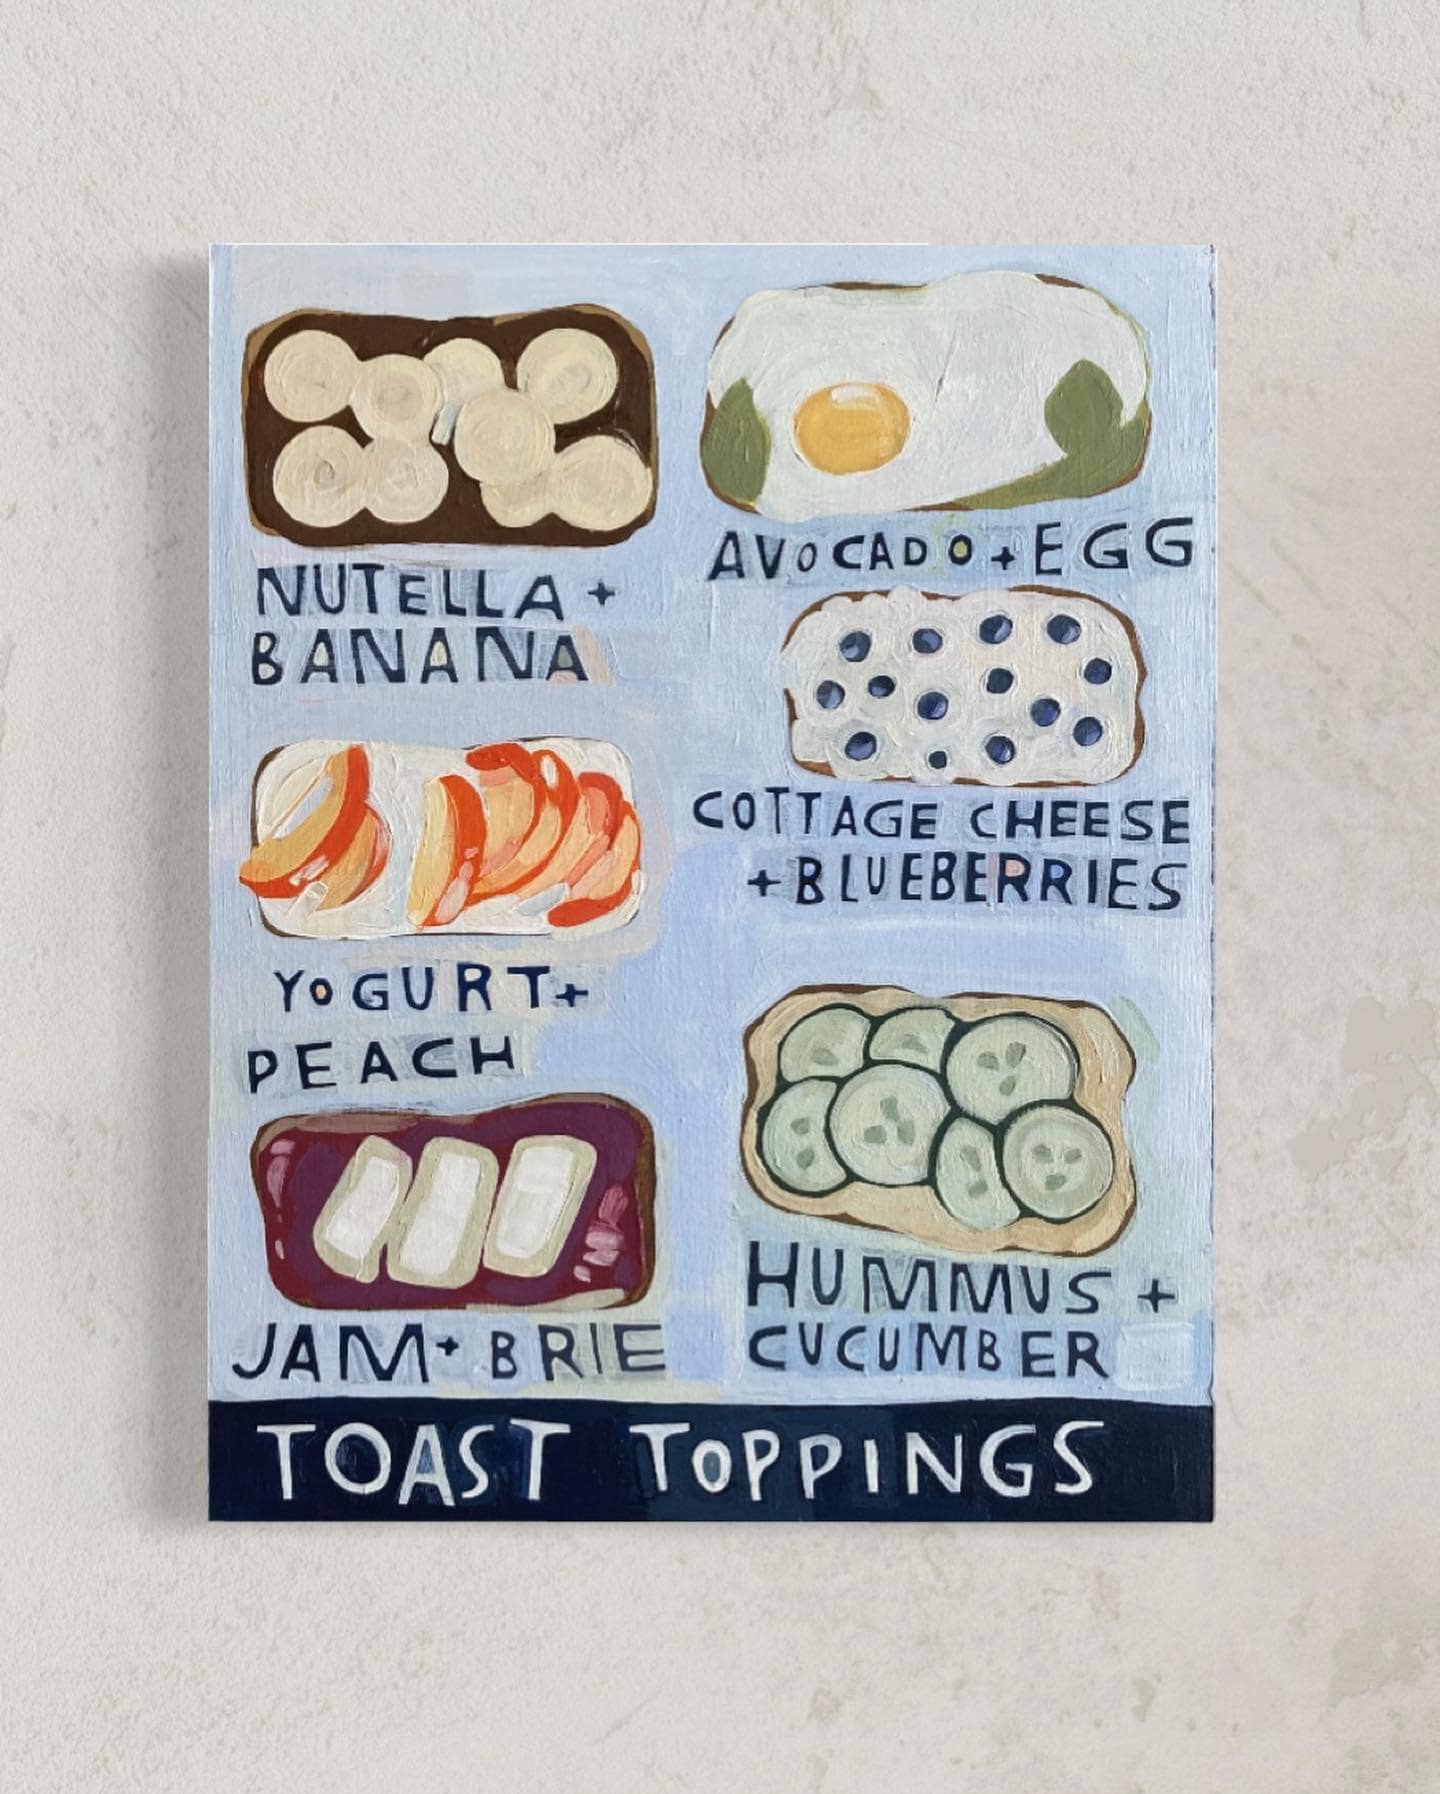 NUTELLA +
BANANA
AVOCADO + EGG
COTTAGE CHEESE
+ BLUEBERRIES
YOGURT +
PEACH
HUMMUS +
CUCUMBER
JAM + BRIE
TOAST TOPPINGS